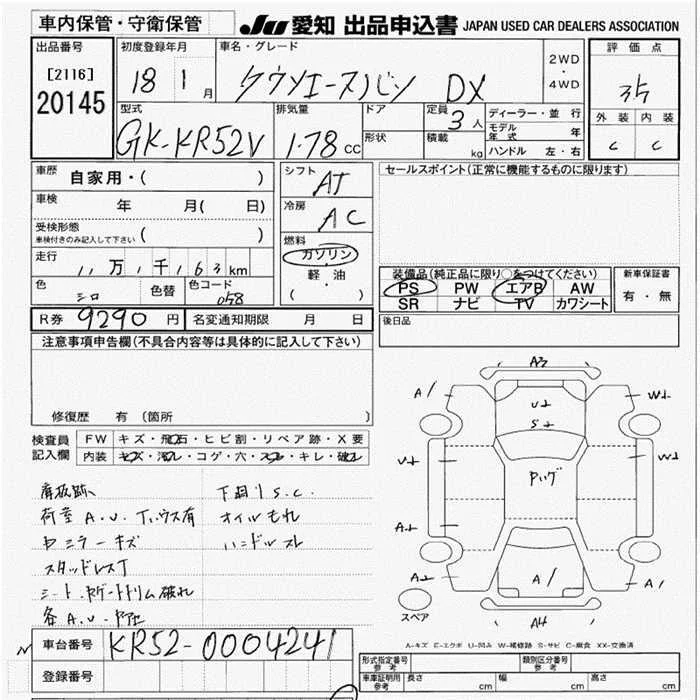 車内保管・守衛保管
JU 愛知 出品申込書 JAPAN USED CAR DEALERS ASSOCIATION
出品番号
[2116]
20145
初度登録年月
18 1 月
車名・グレード
DX
2WD
・
4WD
評価点
外装 内装
C C
型式
GK-KR52V
排気量
1.78 CC
ドア
形状
定員
3 人
積載
kg
ディーラー・並行
モデル年式 年
ハンドル 左・右
車歴
自家用・( )
車検
年 月( 日)
受検形態
車検付きのみ記入して下さい ( )
走行
11 万 1 千 163 km
色
シロ
色替
色コード
058
シフト
AT
冷房
AC
燃料
ガソリン
・
軽油
( )
セールスポイント(正常に機能するものに限ります)
装備品(純正品に限り○をつけてください)
PS PW エアB AW
SR ナビ TV カワシート
新車保証書
有・無
R券 9290 円
名変通知期限 月 日
後日品
注意事項申告欄(不具合内容等は具体的に記入して下さい)
修復歴 有 (箇所 )
検査員
記入欄
FW キズ・飛石・ヒビ割・リペア跡・X要
内装 キズ・汚レ・コゲ・穴・スレ・キレ・破レ
下回りS.C.
オイルもれ
ハンドルスレ
スタッドレス丁
A3
A1
U
S
A1
A4
スペア
A-キズ E-エクボ U-凹み W-補修跡 S-サビ C-腐食 XX-交換済
車台番号 KR52-0004241
登録番号
形式指定番号
参考
類別区分番号
参考
車庫証明用
参考
長さ cm 幅 cm 高さ cm